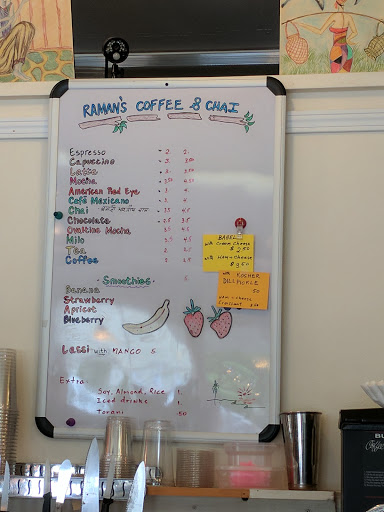 RAMAN'S COFFEE & CHAI
Espresso - 2. 2.
Capuccino - 3. 3.50
Latte
Mocha - 3.50
American Red Eye - 3. 4.
Café Mexicano - 3. 4.
Chai
Chocolate
Ovaltine Mocha
Milo
Tea
Coffee
Smoothies 5
Banana
Strawberry
Apricot
Blueberry
Lassi with MANGO 5
Extra:
Soy, Almond, Rice 1.
Iced drinks 1.
Torani .50
BAGEL
w/ Creme Cheese
w/ Ham + Cheese
KOCHER
DILL PICKLE
50
HAM + Cheese
Croissant